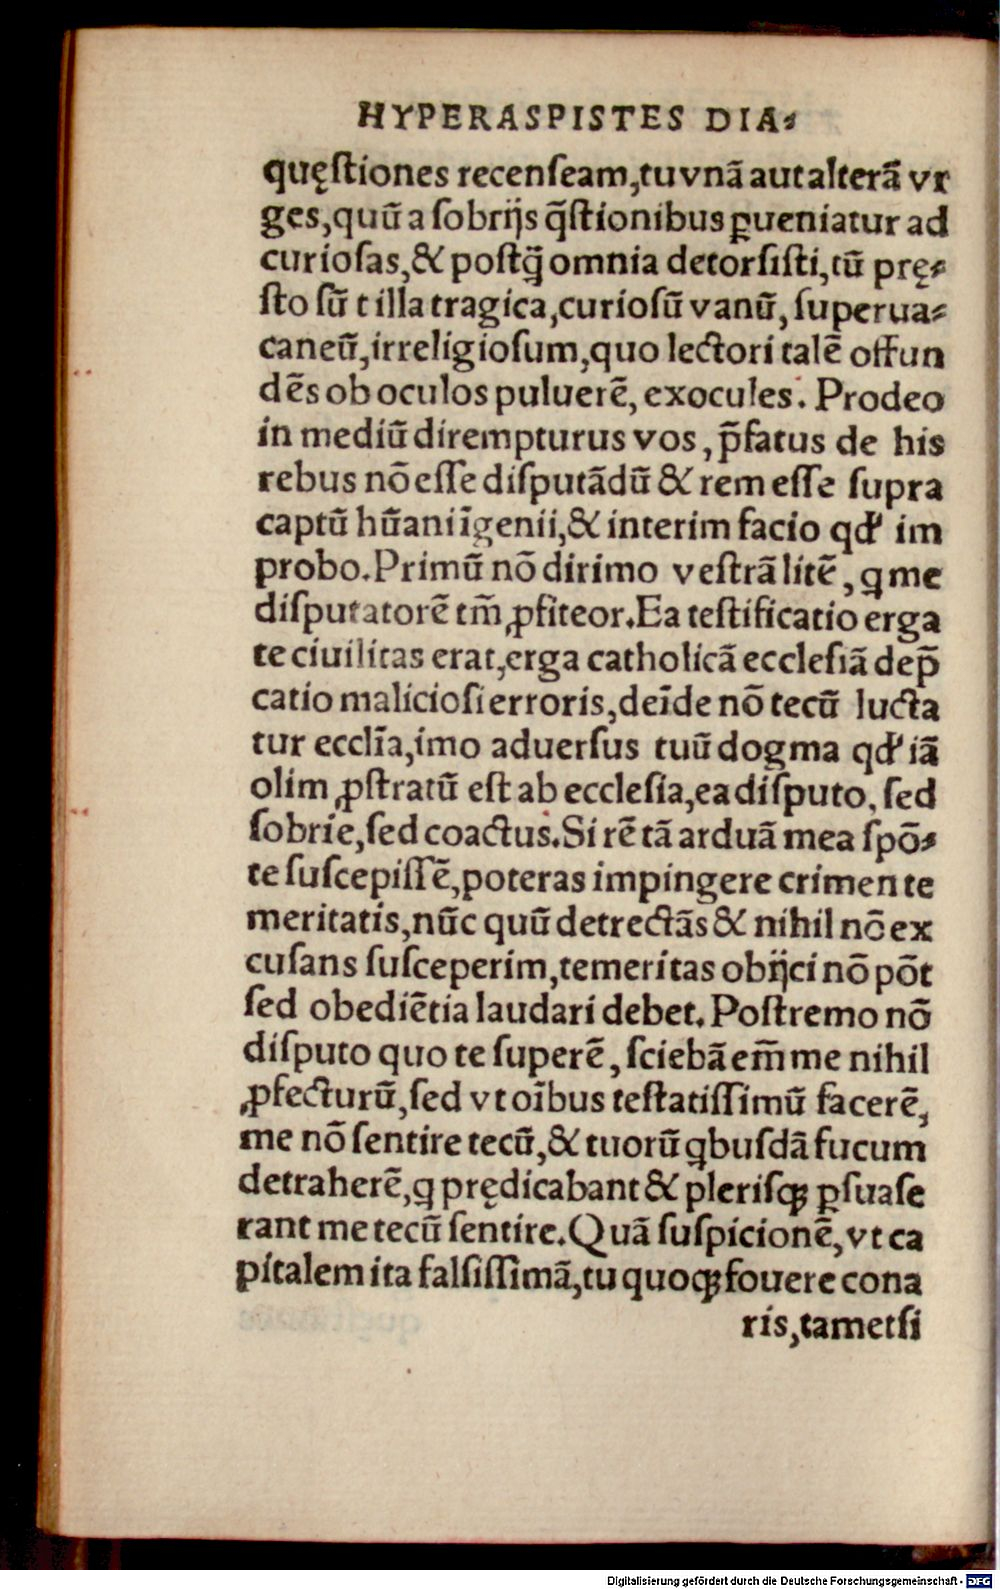 HYPERASPISTES DIA⸗
quęſtiones recenſeam,tu vnā aut alterā vr
ges,quū a ſobrijs q̃ſtionibus ꝑueniatur ad
curioſas,& poſtq̃ omnia detorſiſti,tū prę⸗
ſto ſūt illa tragica,curioſū vanū, ſuperua⸗
caneū,irreligioſum,quo lectori talē offun
dēs ob oculos puluerē, exocules. Prodeo
in mediū dirempturus vos, p̄fatus de his
rebus nō eſſe diſputādū & rem eſſe ſupra
captū hūani īgenii,& interim facio qđ im
probo.Primū nō dirimo veſtrā litē, ꝗ me
diſputatorē tm̄ ꝓfiteor.Ea teſtificatio erga
te ciuilitas erat,erga catholicā eccleſiā dep̄
catio malicioſi erroris,deīde nō tecū lucta
tur eccl̄ia,imo aduerſus tuū dogma qđ iā
olim ꝓſtratū eſt ab eccleſia,ea diſputo, ſed
ſobrie,ſed coactus.Si rē tā arduā mea ſpō⸗
te ſuſcepiſſē,poteras impingere crimen te
meritatis,nūc quū detrectās & nihil nō ex
cuſans ſuſceperim,temeritas obijci nō pōt
ſed obediētia laudari debet.Poſtremo nō
diſputo quo te ſuperē, ſciebā em̄ me nihil
ꝓfecturū,ſed vt oībus teſtatiſſimū facerē,
me nō ſentire tecū,& tuorū ꝗbuſdā fucum
detraherē,ꝗ prędicabant & pleriſqꝫ ꝑſuaſe
rant me tecū ſentire.Quā ſuſpicionē,vt ca
pitalem ita falſiſſimā,tu quoqꝫ fouere cona
ris,tametſi
Digitalisierung gefördert durch die Deutsche Forschungsgemeinschaft - DFG